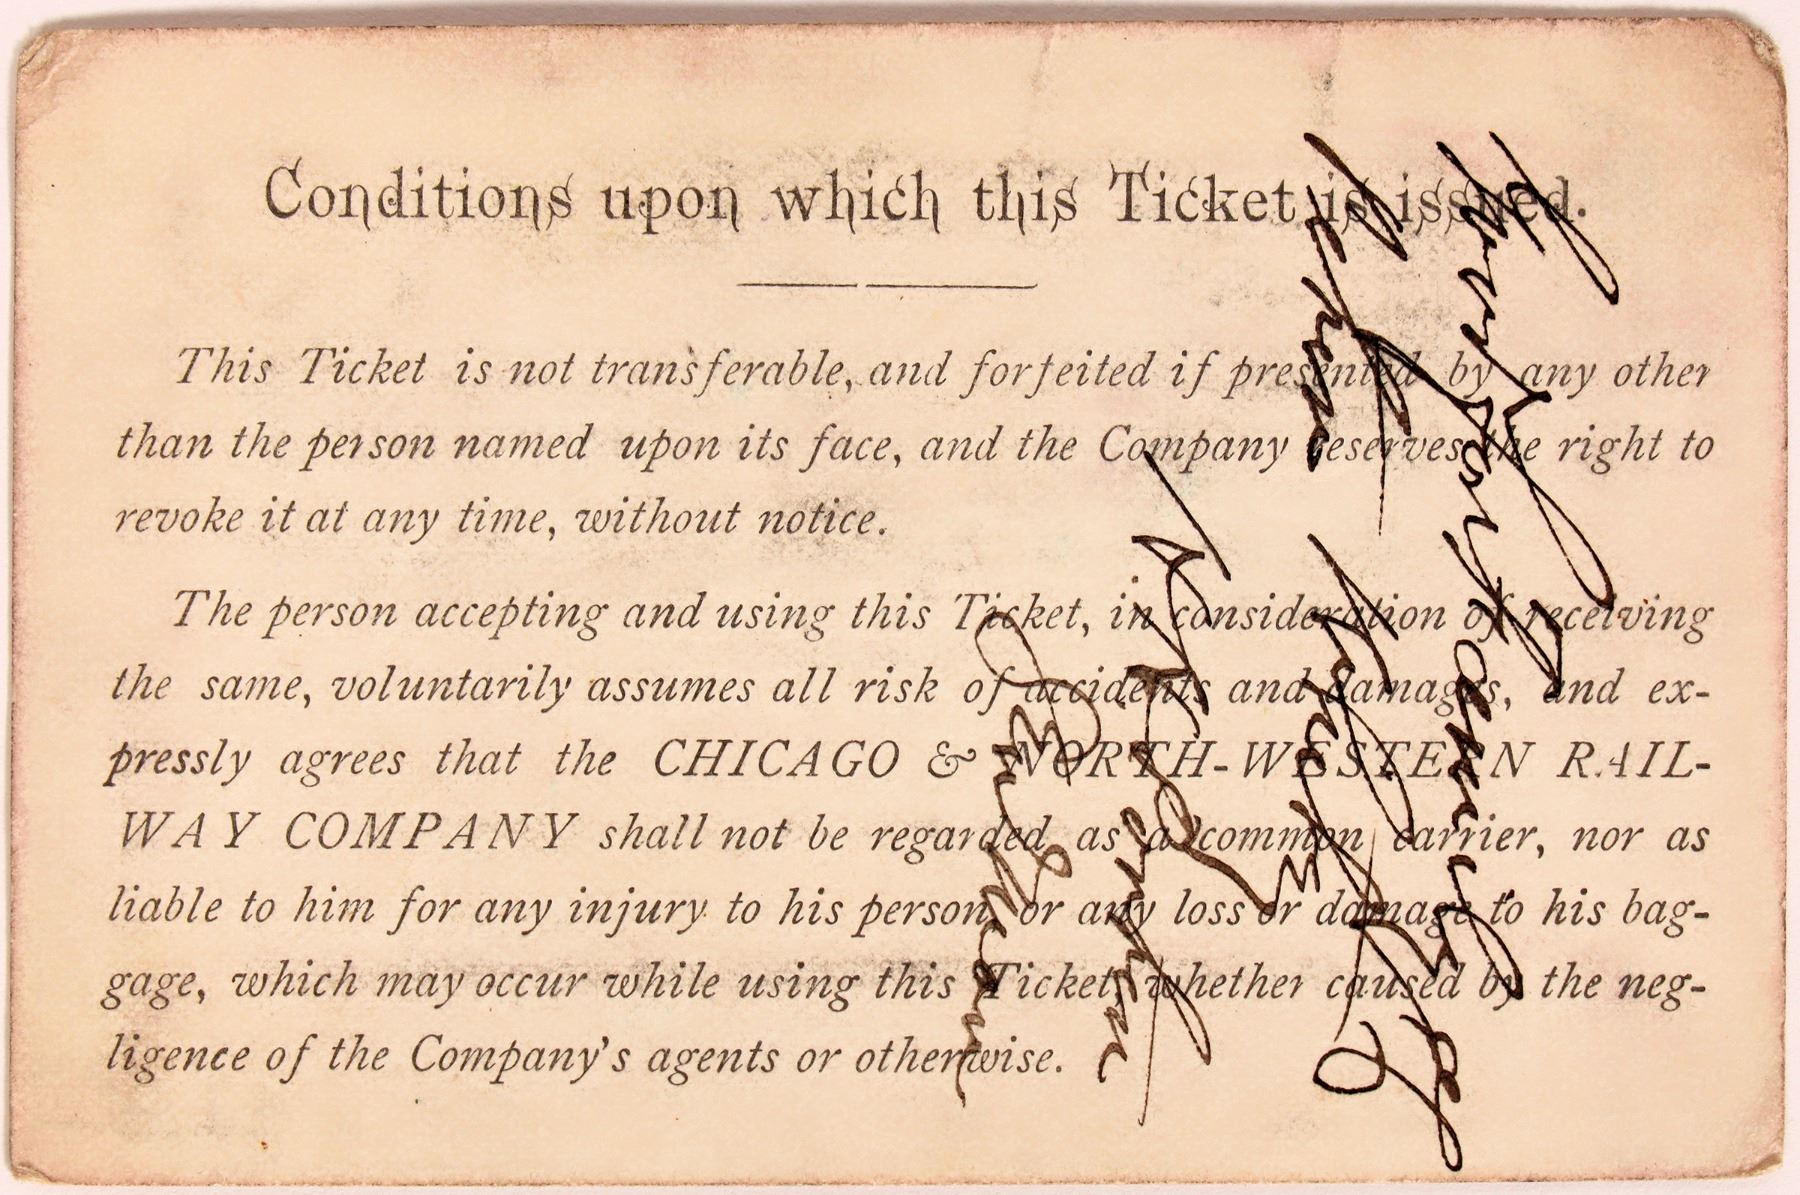 Conditions upon which this Ticket is issued.
This Ticket is not transferable, and forfeited if presented by any other
than the person named upon its face, and the Company reserves the right to
revoke it at any time, without notice.
The person accepting and using this Ticket, in consideration of receiving
the same, voluntarily assumes all risk of accidents and damages, and ex-
pressly agrees that the CHICAGO & NORTH-WESTERN RAIL-
WAY COMPANY shall not be regarded as a common carrier, nor as
liable to him for any injury to his person, or any loss or damage to his bag-
gage, which may occur while using this Ticket, whether caused by the neg-
ligence of the Company's agents or otherwise.